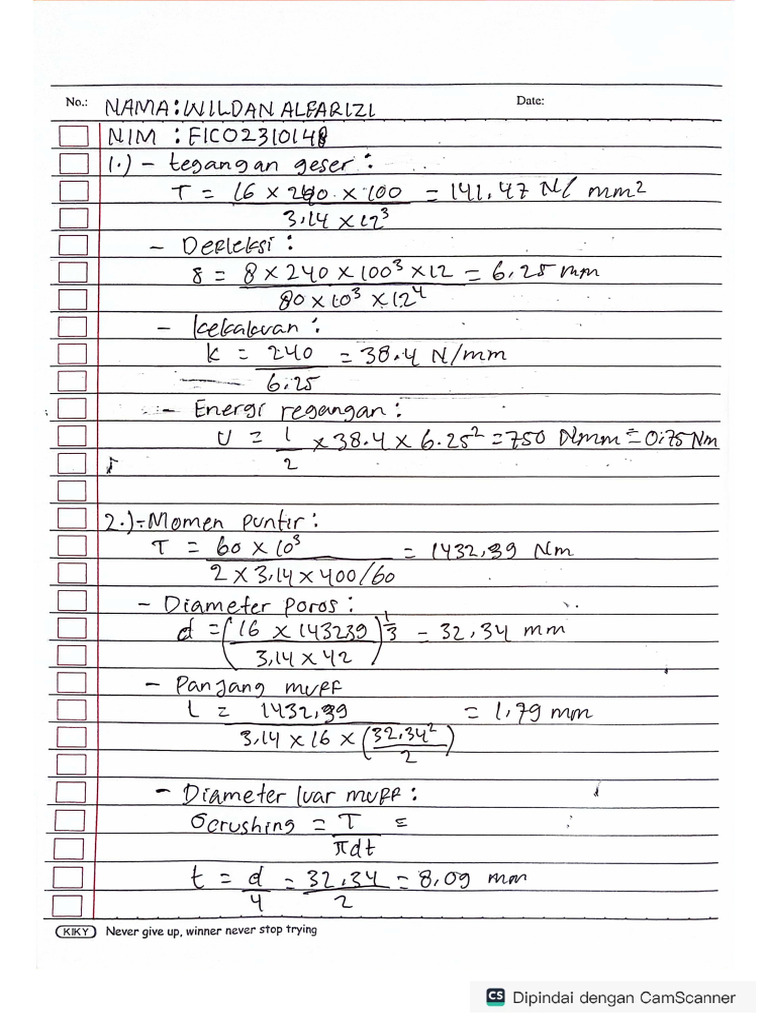 No.: NAMA: WILDAN ALFARIZI Date:
NIM : F1C02310148
1.) - tegangan geser :
T = 16 x 240 x 100 / 3,14 x 12³ = 141,47 N/ mm²
- Defleksi :
δ = 8 x 240 x 100³ x 12 / 80 x 10³ x 12⁴ = 6,25 mm
- kekakuan :
k = 240 / 6,25 = 38.4 N/mm
- Energi regangan :
U = 1 / 2 x 38.4 x 6.25² = 750 Nmm = 0,75 Nm
2.) - Momen puntir :
T = 60 x 10³ / 2 x 3,14 x 400/60 = 1432,39 Nm
- Diameter poros :
d = (16 x 143239 / 3,14 x 42)^1/3 = 32,34 mm
- Panjang muff
L = 1432,39 / 3,14 x 16 x (32,34² / 2) = 1,79 mm
- Diameter luar muff :
σcrushing = T / πdt =
t = d / 4 = 32,34 / 2 = 8,09 mm
KIKY Never give up, winner never stop trying
CS Dipindai dengan CamScanner